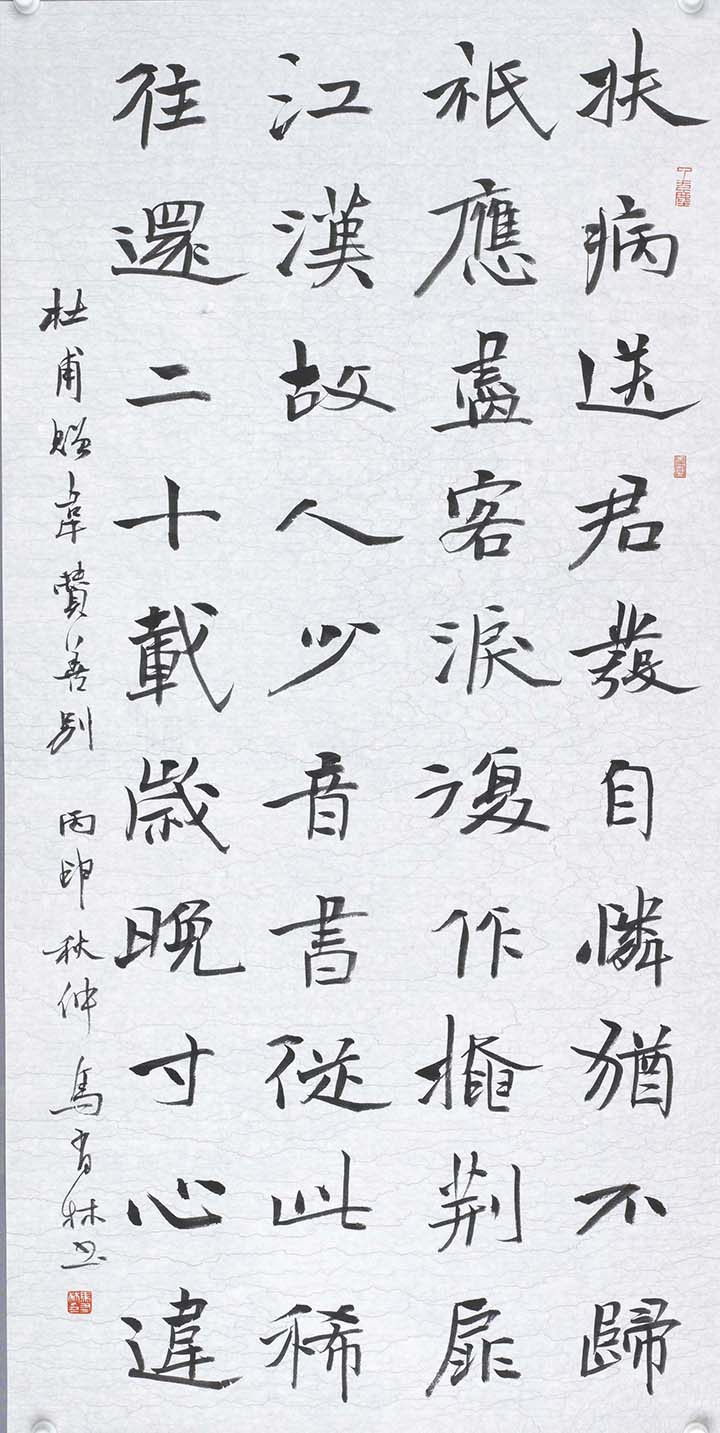 扶病送君發自憐猶不歸
祇應盡客淚復作掩荆扉
江漢故人少音書從此稀
往還二十載歲晚寸心違
杜甫贈韋贊善別 丙申秋仲 馬有林书